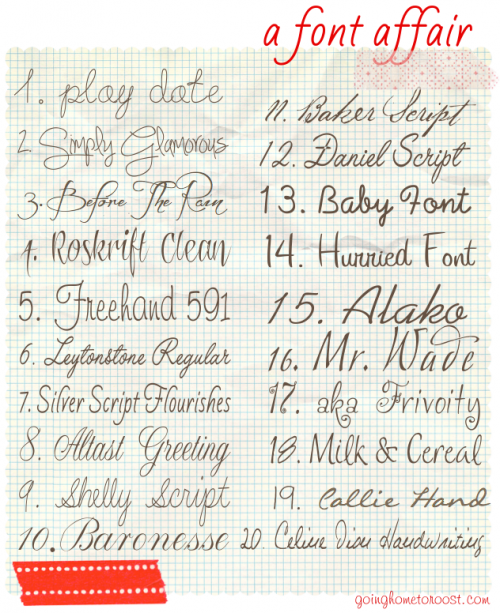 a font affair
1. play date
2. Simply Glamorous
3. Before The Rain
4. Roskrift Clean
5. Freehand 591
6. Leytonstone Regular
7. Silver Script Flourishes
8. Altast Greeting
9. Shelly Script
10. Baronesse
11. Baker Script
12. Daniel Script
13. Baby Font
14. Hurried Font
15. Alako
16. Mr. Wade
17. aka Frivoity
18. Milk & Cereal
19. Callie Hand
20. Celine Dion Handwriting
goinghometoroost.com